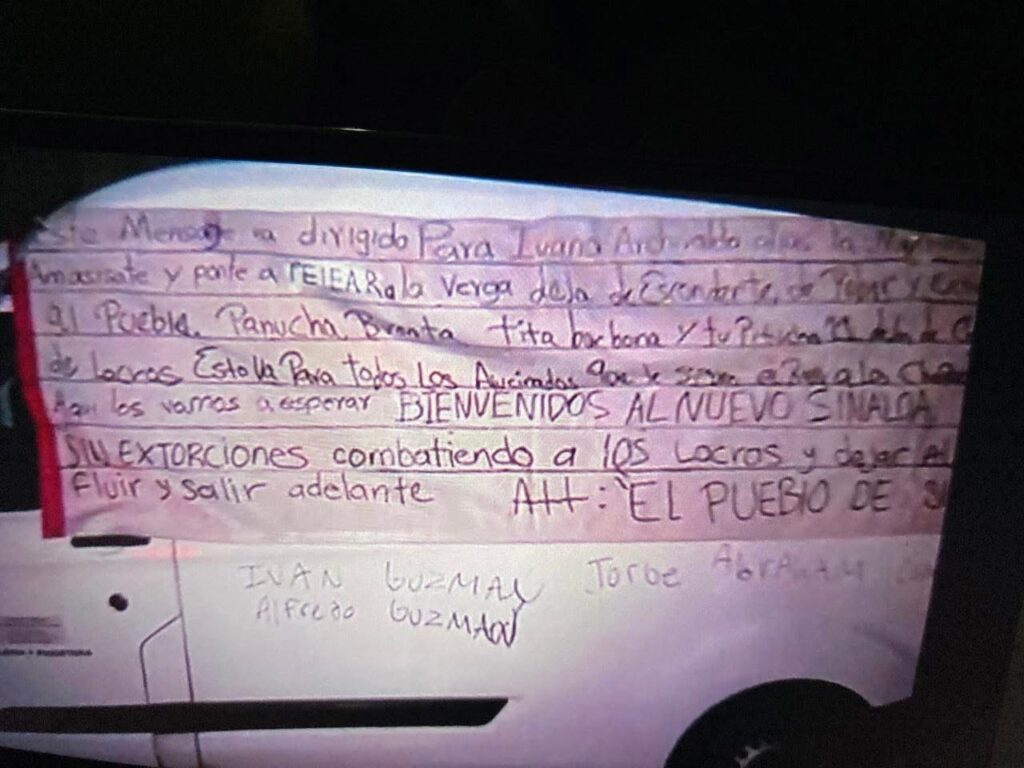 Este Mensaje va dirigido Para Ivana Archivaldo alias la
Amarrate y ponte a PELEAR a la Verga deja de Esconderte, de Topar y
al Pueblo. Panucha Tita barbona y tu
de Lacras Esto Va Para todos Los que le
Aqui los vamos a esperar BIENVENIDOS AL NUEVO SINALOA
SIN EXTORCIONES combatiendo a los Lacros y dejar Al
Fluir y Salir adelante Att: "EL PUEBLO DE
IVAN GUZMAN Jorge AbrAhAM
Alfredo GUZMAN